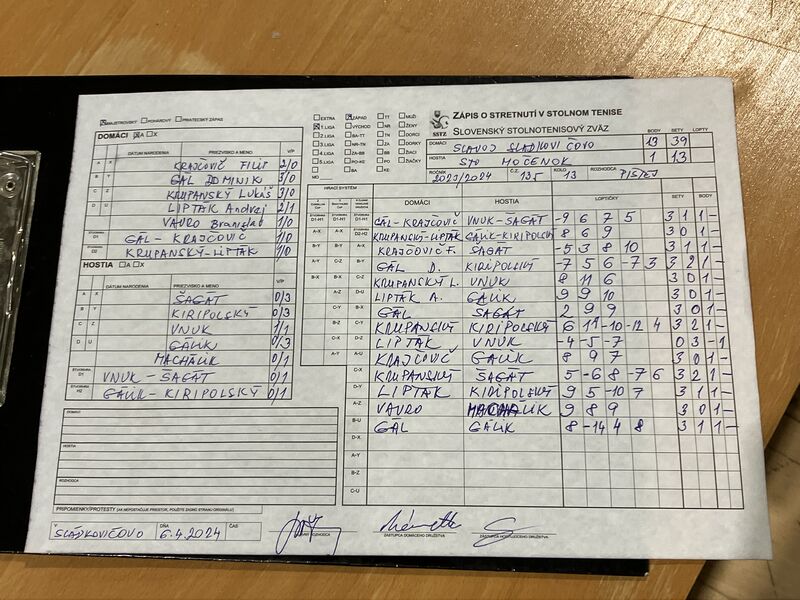 ZÁPIS O STRETNUTÍ V STOLNOM TENISE
SLOVENSKÝ STOLNOTENISOVÝ ZVÄZ
SSTZ
MAJSTROVSKÝ POHÁROVÝ PRIATEĽSKÝ ZÁPAS
EXTRA ZÁPAD TT MUŽI
1.LIGA VÝCHOD NR ŽENY
2.LIGA BA-TT TN DORCI
3.LIGA NR-TN ZA DORKY
4.LIGA ZA-BB BB ŽIACI
5.LIGA PO-KE PO ŽIAČKY
MO BA KE
DOMÁCI SLAVOJ SLÁDKOVIČOVO BODY 13 SETY 39 LOPTY
HOSTIA STO MOČENOK 1 13
ROČNÍK 2023/2024 Č.Z. 135 KOLO 13 ROZHODCA
DOMÁCI A X
DÁTUM NARODENIA PRIEZVISKO A MENO V/P
A X KRAJČOVIČ FILIP 2/0
B Y GÁL DOMINIK 3/0
C Z KRUPANSKÝ LUKÁŠ 3/0
D U LIPTÁK Andrej 2/1
VAVRO Branislav 1/0
D1 GÁL - KRAJČOVIČ 1/0
D2 KRUPANSKÝ-LIPTÁK 1/0
HOSTIA A X
DÁTUM NARODENIA PRIEZVISKO A MENO V/P
A X ŠAGÁT 0/3
B Y KIRIPOLSKÝ 0/3
C Z VNUK 1/1
D U GÁLIK 0/3
MACHÁLIK 0/1
VNUK - ŠAGÁT 0/1
GÁLIK - KIRIPOLSKÝ 0/1
HRACÍ SYSTÉM DOMÁCI HOSTIA LOPTIČKY SETY BODY
GÁL-KRAJČOVIČ VNUK-ŠAGÁT -9 6 7 5 3 1 1 -
KRUPANSKÝ-LIPTÁK GÁLIK-KIRIPOLSKÝ 8 6 9 3 0 1 -
KRAJČOVIČ F. ŠAGÁT -5 3 8 10 3 1 1 -
GÁL D. KIRIPOLSKÝ -7 5 6 -7 3 3 2 1 -
KRUPANSKÝ L. VNUK 8 11 6 3 0 1 -
LIPTÁK A. GÁLIK 9 9 10 3 0 1 -
GÁL ŠAGÁT 2 9 9 3 0 1 -
KRUPANSKÝ KIRIPOLSKÝ 6 11 -10 -12 4 3 2 1 -
LIPTÁK VNUK -4 -5 -7 0 3 - 1
KRAJČOVIČ GÁLIK 8 9 7 3 0 1 -
KRUPANSKÝ ŠAGÁT 5 -6 8 -7 6 3 2 1 -
LIPTÁK KIRIPOLSKÝ 9 5 -10 7 3 1 1 -
VAVRO MACHÁLIK 9 8 9 3 0 1 -
GÁL GÁLIK 8 -14 4 8 3 1 1 -
DOMÁCI
HOSTIA
ROZHODCA
PRIPOMIENKY/PROTESTY (AK NEPOSTAČUJE PRIESTOR, POUŽITE ZADNÚ STRANU ORIGINÁLU)
V SLÁDKOVIČOVO DŇA 6.4.2024 ČAS
ROZHODCA
ZÁSTUPCA DOMÁCEHO DRUŽSTVA
ZÁSTUPCA HOSŤUJÚCEHO DRUŽSTVA